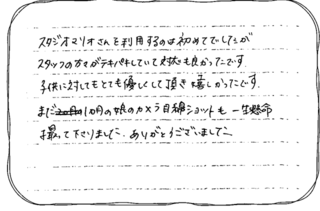 スタジオマリオさんを利用するのは初めてでしたが
スタッフの方々がテキパキしていて対応も良かったです。
子供に対してもとても優しくして頂き嬉しかったです。
まだ1ヵ月の娘のカメラ目線ショットも一生懸命
撮って下さりました。ありがとうございました。